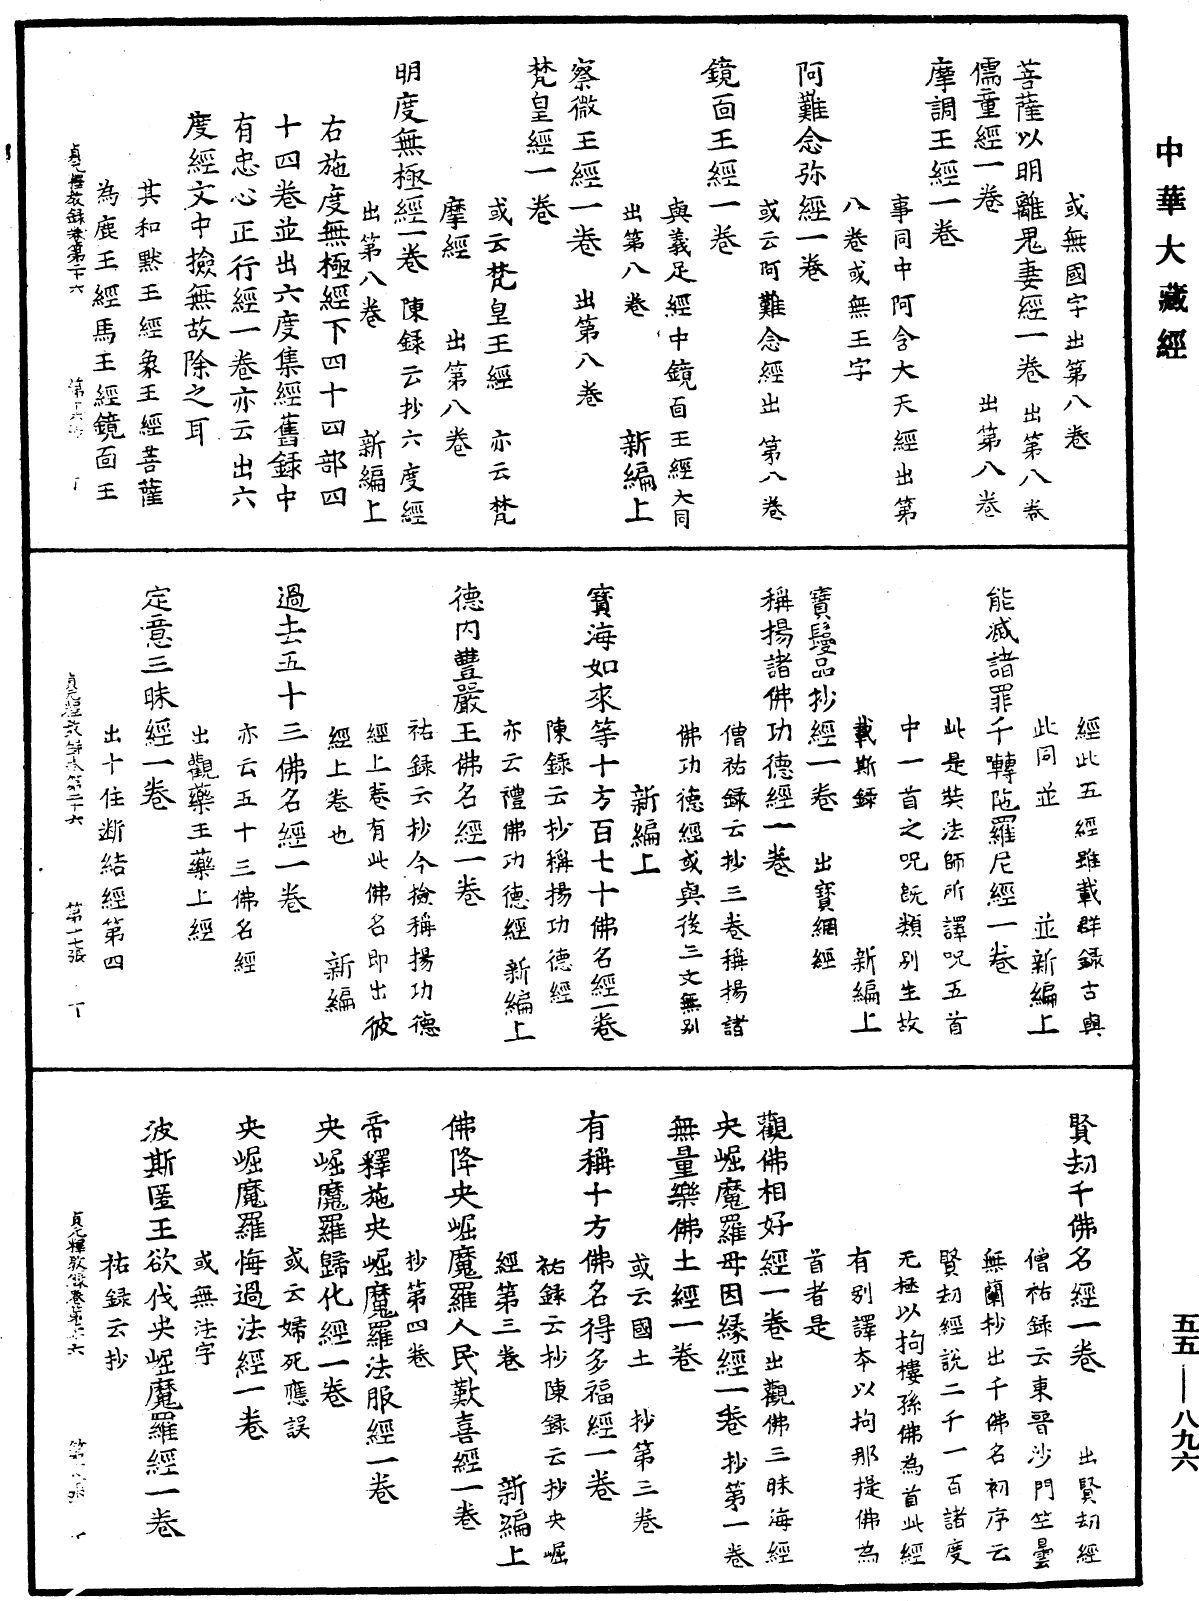 中華大藏經
或無國字出第八卷
菩薩以明離鬼妻經一卷 出第八卷
儒童經一卷 出第八卷
摩調王經一卷
事同中阿含大天經出第
八卷或無王字
阿難念弥經一卷
或云阿難念經出第八卷
鏡面王經一卷
與義足經中鏡面王經大同
出第八卷 新編上
察微王經一卷 出第八卷
梵皇經一卷
或云梵皇王經 亦云梵
摩經 出第八卷
明度無極經一卷 陳録云抄六度經
出第八卷 新編上
右施度無極經下四十四部四
十四卷並出六度集經舊録中
有忠心正行經一卷亦云出六
度經文中撿無故除之耳
其和默王經象王經菩薩
為鹿王經馬王經鏡面王
貞元釋教録卷第二十六 第十六張 丁
經此五經雖載群録古與
此同並 並新編上
能滅諸罪千囀陁羅尼經一卷
此是奘法師所譯呪五首
中一首之呪既類別生故
載斯録 新編上
寶鬘品抄經一卷 出寶網經
稱揚諸佛功德經一卷
僧祐録云抄三卷稱揚諸
佛功德經或與後三文無別
新編上
寶海如來等十方百七十佛名經一卷
陳録云抄稱揚功德經
亦云禮佛功德經 新編上
德内豐嚴王佛名經一卷
祐録云抄今撿稱揚功德
經上卷有此佛名即出彼
經上卷也 新編
過去五十三佛名經一卷
亦云五十三佛名經
出觀藥王藥上經
定意三昧經一卷
出十住断結經第四
貞元釋教録卷第二十六 第十七張 丁
賢劫千佛名經一卷 出賢劫經
僧祐録云東晉沙門竺曇
無蘭抄出千佛名初序云
賢劫經說二千一百諸度
无極以拘樓孫佛為首此經
有別譯本以拘那提佛為
首者是
觀佛相好經一卷 出觀佛三昧海經
央崛魔羅母因縁經一卷 抄第一卷
無量樂佛土經一卷
或云國土 抄第三卷
有稱十方佛名得多福經一卷
祐録云抄陳録云抄央崛
經第三卷 新編上
佛降央崛魔羅人民歎喜經一卷
抄第四卷
帝釋施央崛魔羅法服經一卷
央崛魔羅歸化經一卷
或云婦死應誤
央崛魔羅悔過法經一卷
或無法字
波斯匿王欲伐央崛魔羅經一卷
祐録云抄
貞元釋教録卷第二十六 第十八張 丁
五五—八九六